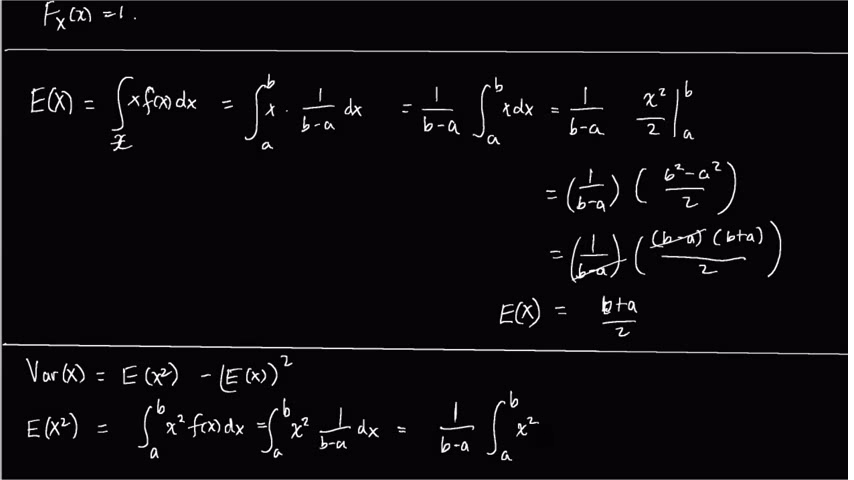 F_X(x) = 1.
E(X) = ∫_𝒳 x f(x) dx = ∫_a^b x · 1/(b-a) dx = 1/(b-a) ∫_a^b x dx = 1/(b-a) x²/2 |_a^b
= (1/(b-a)) ((b²-a²)/2)
= (1/(b-a)) ((b-a)(b+a)/2)
E(X) = (b+a)/2
Var(X) = E(X²) - (E(X))²
E(X²) = ∫_a^b x² f(x) dx = ∫_a^b x² 1/(b-a) dx = 1/(b-a) ∫_a^b x²